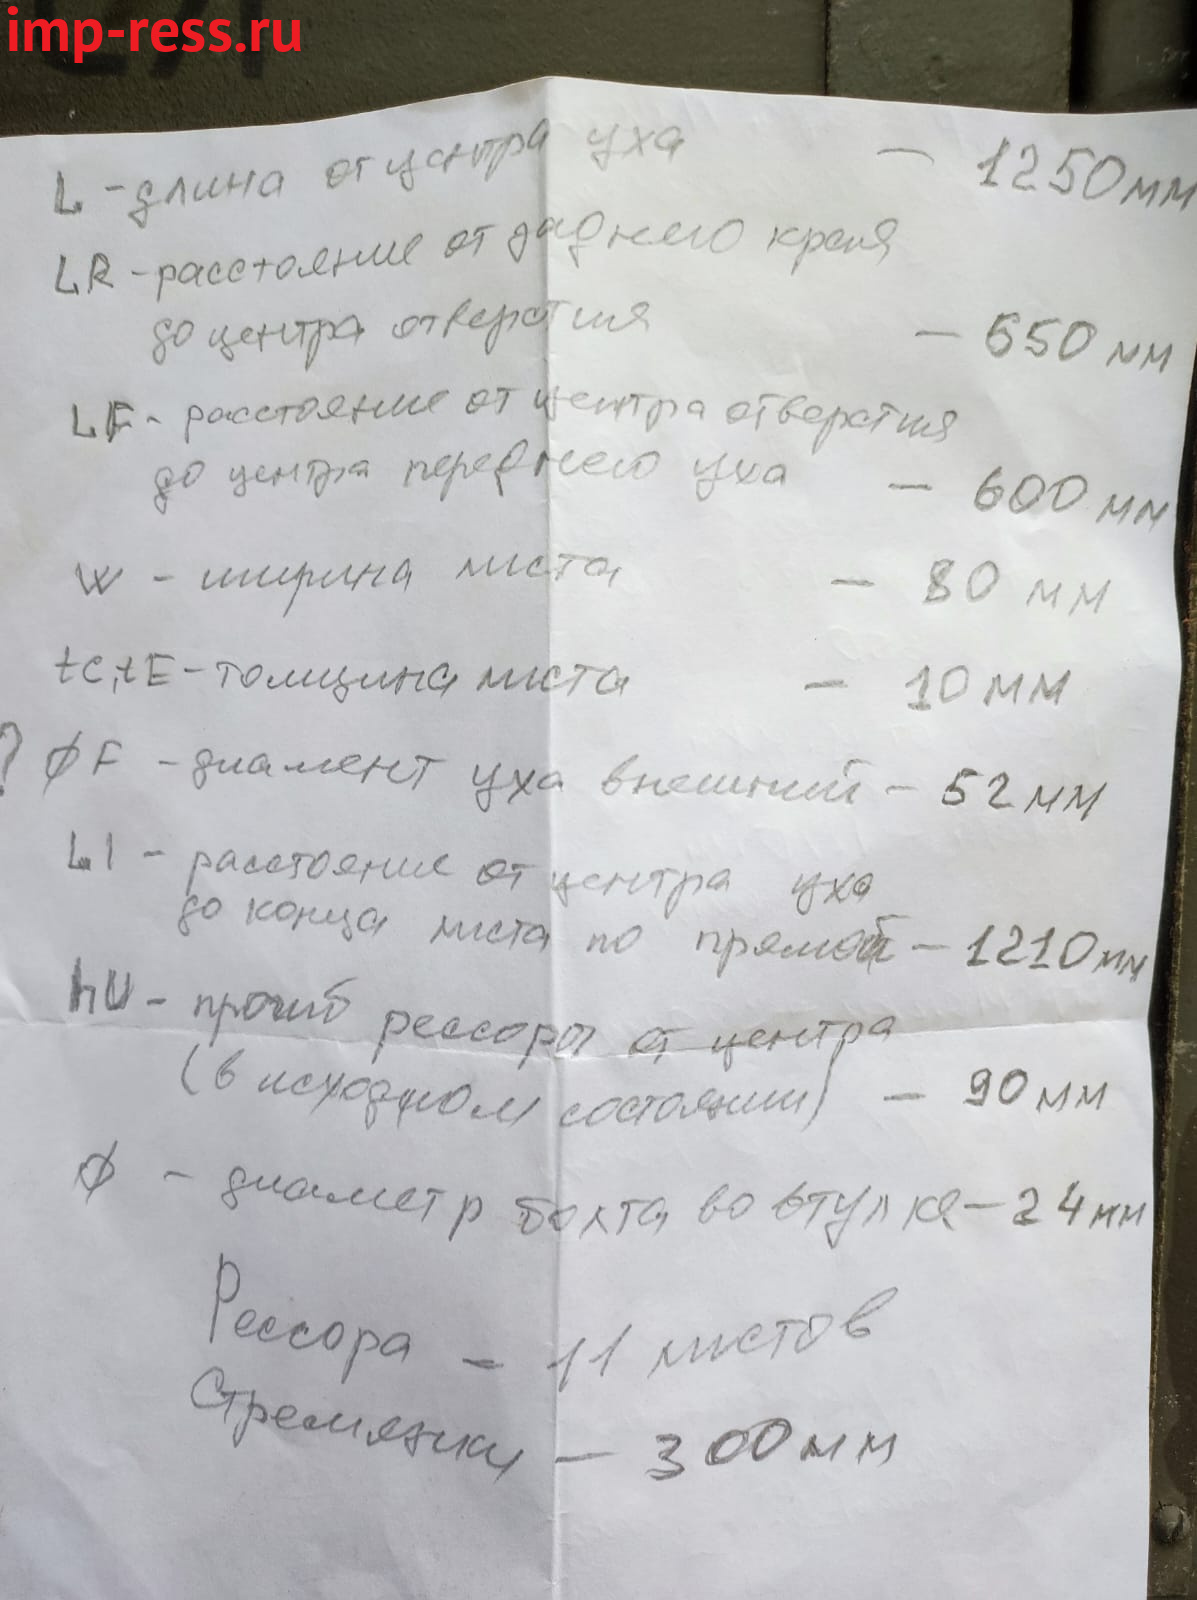 imp-ress.ru
L - длина от центра уха - 1250мм
LR - расстояние от заднего края
до центра отверстия - 650 мм
LF - расстояние от центра отверстия
до центра переднего уха - 600 мм
W - ширина листа - 80 мм
tc, tE - толщина листа - 10мм
? ØF - диамент уха внешний - 52мм
L1 - расстояние от центра уха
до конца листа по прямой - 1210мм
hU - прогиб рессоры от центра
(в исходном состоянии) - 90мм
Ø - диаметр болта во втулке - 24мм
Рессора - 11 листов
Стремянки - 300мм